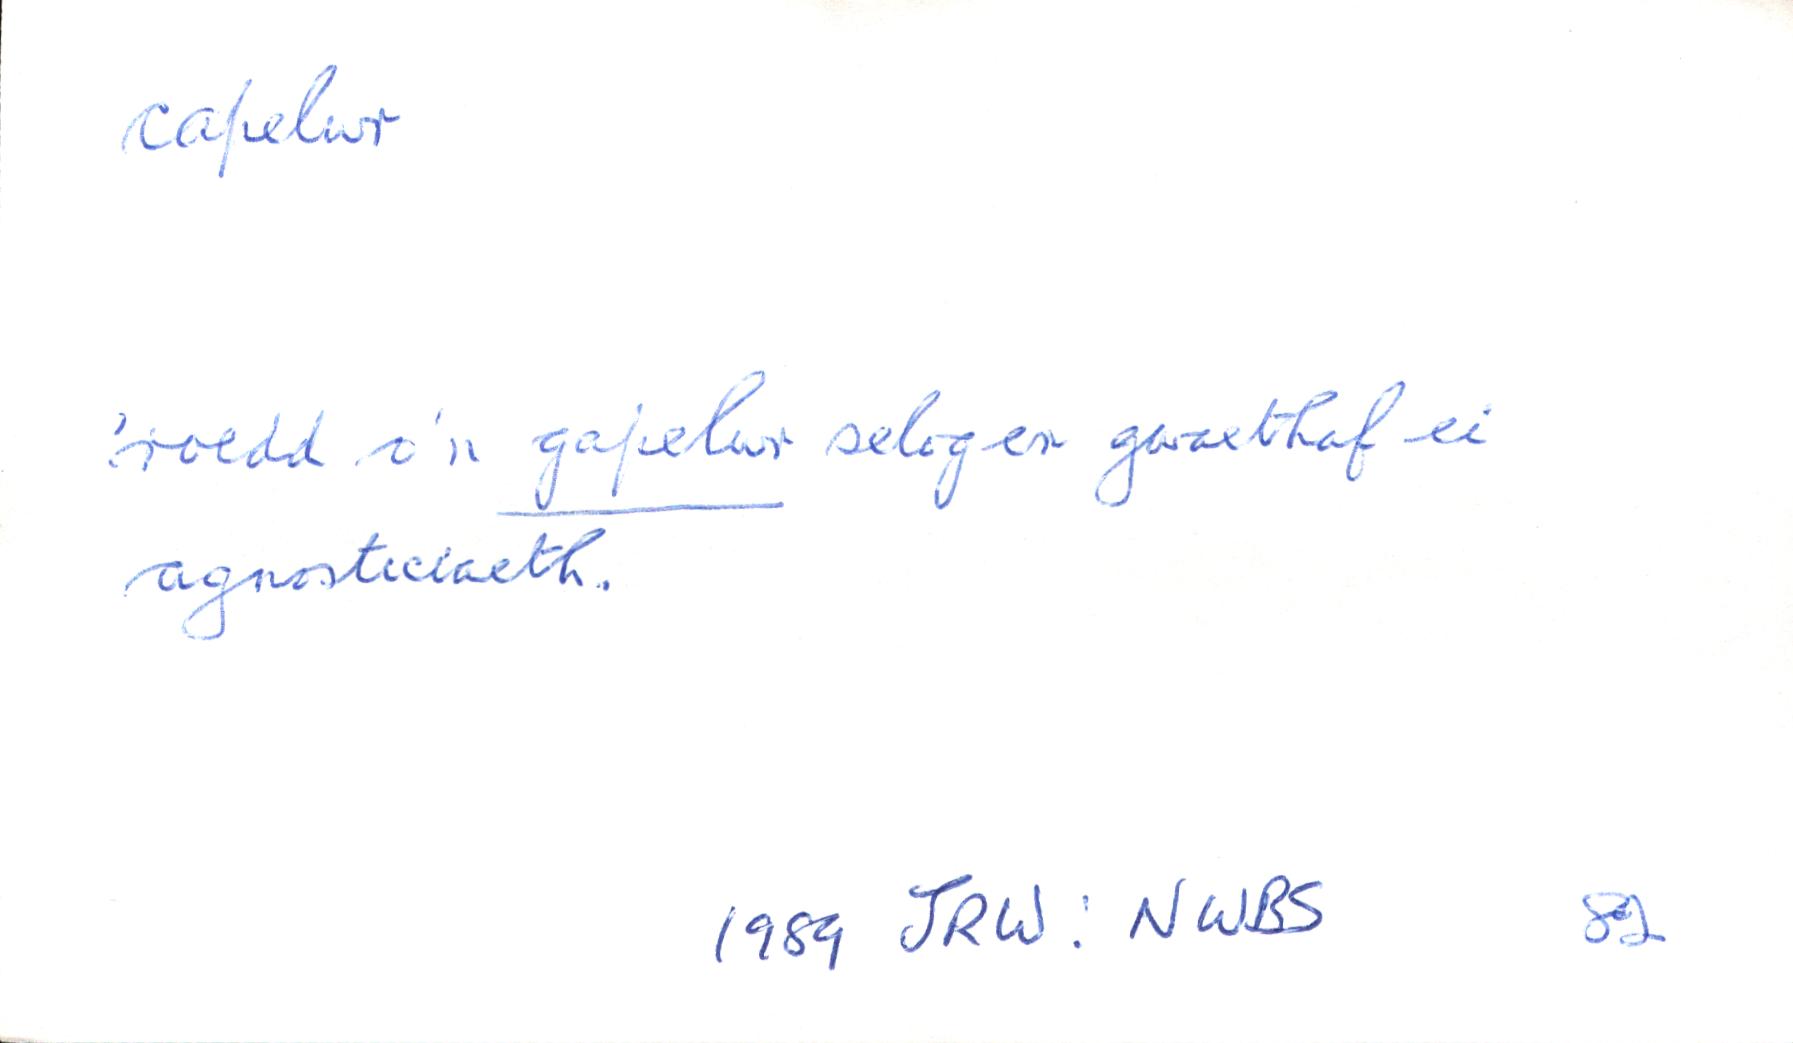 capelwr
'roedd o'n gapelwr selog er gwaethaf ei
agnosticiaeth.
1989 JRW: NWBS 82